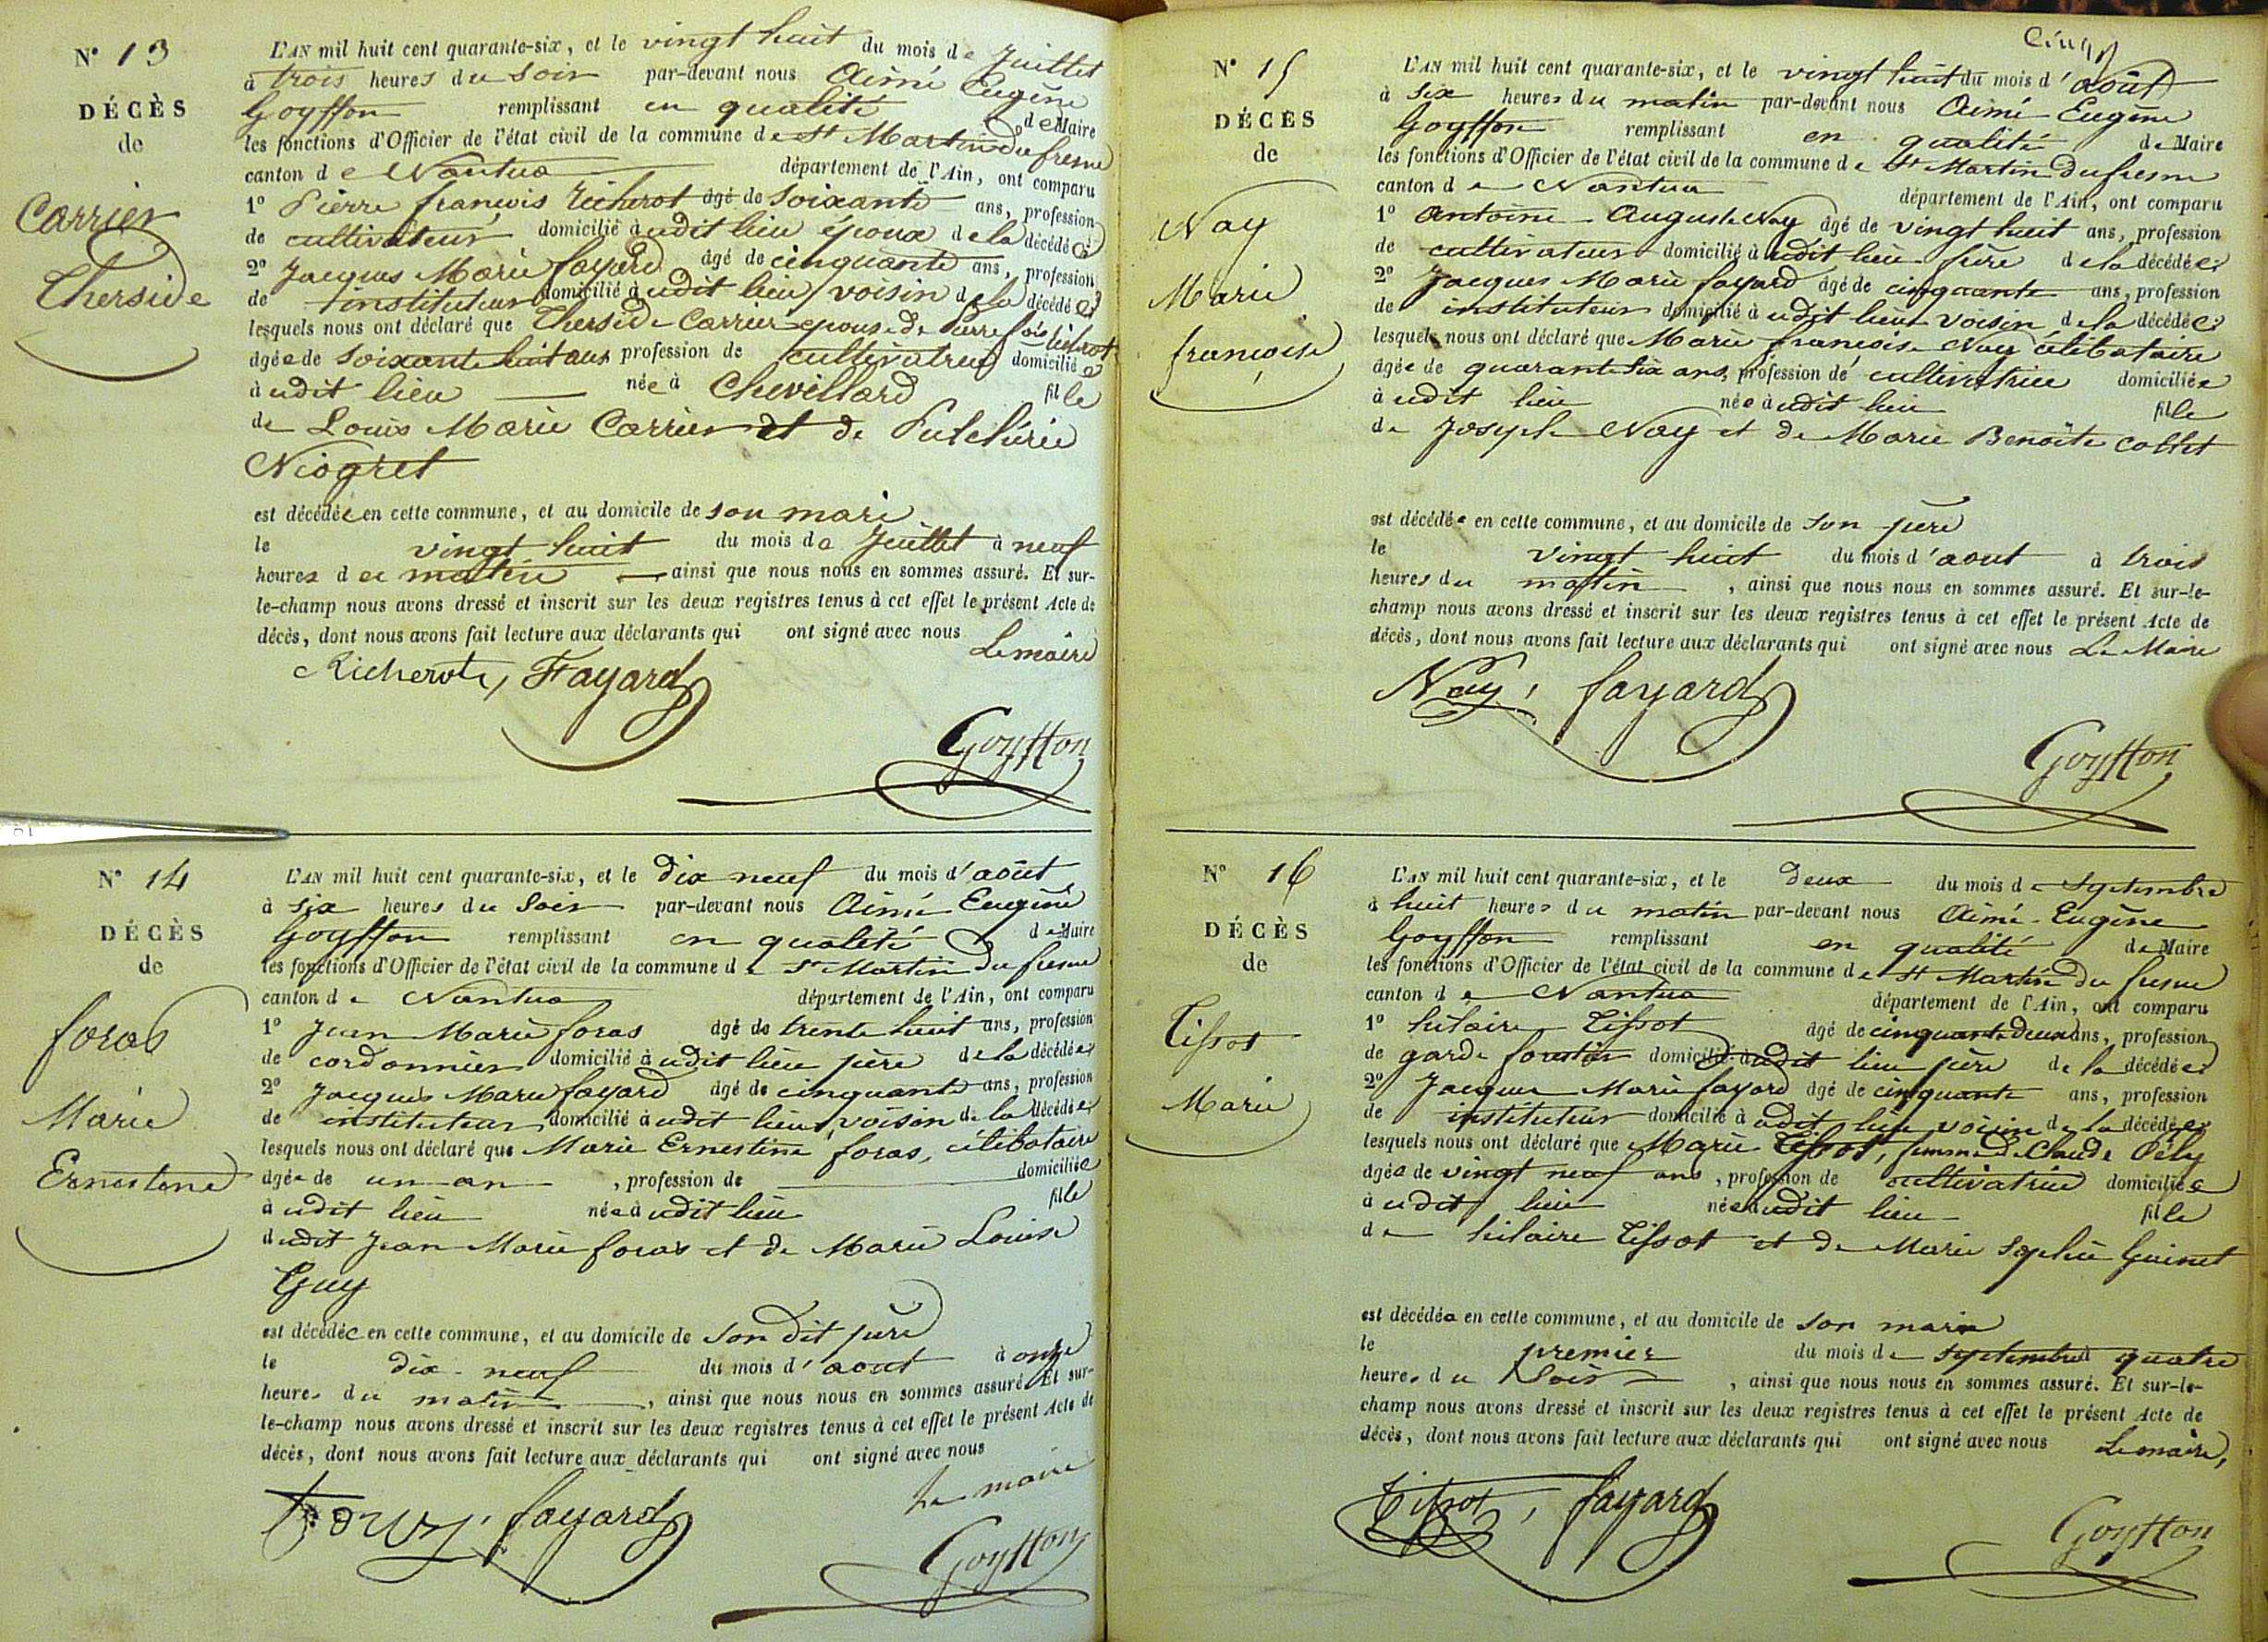 N° 13
DÉCÈS
de
Carrier
Therside
L'AN mil huit cent quarante-six, et le vingt huit du mois de Juillet
à trois heures du soir par-devant nous Aimé Eugène
Goyffon remplissant en qualité de Maire
les fonctions d'Officier de l'état civil de la commune de St Martin du fresne
canton de Nantua département de l'Ain, ont comparu
1° Pierre françois Richerot âgé de soixante ans, profession
de cultivateur domicilié audit lieu époux de la décédée
2° Jacques Marie fayard âgé de cinquante ans, profession
de instituteur domicilié audit lieu voisin de la décédée
lesquels nous ont déclaré que Therside Carrier épouse de Pierre fois Richerot
âgée de soixante huit ans profession de cultivatrice domiciliée
audit lieu née à Chevillard fille
de Louis Marie Carrier et de Pulchérie
Niogret
est décédée en cette commune, et au domicile de son mari
le vingt huit du mois de Juillet à neuf
heures du matin ainsi que nous nous en sommes assuré. Et sur-
le-champ nous avons dressé et inscrit sur les deux registres tenus à cet effet le présent Acte de
décès, dont nous avons fait lecture aux déclarants qui ont signé avec nous Le maire
Richerot, Fayard
Goyffon
N° 14
DÉCÈS
de
foras
Marie
Ernestine
L'AN mil huit cent quarante-six, et le dix neuf du mois d'août
à six heures du soir par-devant nous Aimé Eugène
Goyffon remplissant en qualité de Maire
les fonctions d'Officier de l'état civil de la commune de St Martin du fresne
canton de Nantua département de l'Ain, ont comparu
1° Jean Marie foras âgé de trente huit ans, profession
de cordonnier domicilié audit lieu père de la décédée
2° Jacques Marie fayard âgé de cinquante ans, profession
de instituteur domicilié audit lieu, voisin de la décédée
lesquels nous ont déclaré que Marie Ernestine foras, célibataire
âgée de un an , profession de domiciliée
audit lieu née audit lieu fille
dudit Jean Marie foras et de Marie Louise
Guy
est décédée en cette commune, et au domicile de son dit père
le dix-neuf du mois d'aout à onze
heures du matin , ainsi que nous nous en sommes assuré. Et sur-
le-champ nous avons dressé et inscrit sur les deux registres tenus à cet effet le présent Acte de
décès, dont nous avons fait lecture aux déclarants qui ont signé avec nous
Le maire
fayard
Goyffon
N° 15
DÉCÈS
de
Nay
Marie
françoise
L'AN mil huit cent quarante-six, et le vingt huit du mois d'août
à six heures du matin par-devant nous Aimé Eugène
Goyffon remplissant en qualité de Maire
les fonctions d'Officier de l'état civil de la commune de St Martin du fresne
canton de Nantua département de l'Ain, ont comparu
1° Antoine Auguste Nay âgé de vingt huit ans, profession
de cultivateur domicilié audit lieu frère de la décédée
2° Jacques Marie fayard âgé de cinquante ans, profession
de instituteur domicilié audit lieu voisin de la décédée
lesquels nous ont déclaré que Marie françoise Nay célibataire
âgée de quarante six ans, profession de cultivatrice domiciliée
audit lieu née audit lieu fille
de Joseph Nay et de Marie Benoîte Collet
est décédée en cette commune, et au domicile de son père
le vingt huit du mois d'aout à trois
heures du matin , ainsi que nous nous en sommes assuré. Et sur-le-
champ nous avons dressé et inscrit sur les deux registres tenus à cet effet le présent Acte de
décès, dont nous avons fait lecture aux déclarants qui ont signé avec nous Le Maire
Nay, fayard
Goyffon
N° 16
DÉCÈS
de
Tissot
Marie
L'AN mil huit cent quarante-six, et le deux du mois de septembre
à huit heures du matin par-devant nous Aimé-Eugène
Goyffon remplissant en qualité de Maire
les fonctions d'Officier de l'état civil de la commune de St Martin du fresne
canton de Nantua département de l'Ain, ont comparu
1° hilaire Tissot âgé de cinquante deux ans, profession
de garde forestier domicilié audit lieu père de la décédée
2° Jacques Marie fayard âgé de cinquante ans, profession
de instituteur domicilié à udit lieu voisin de la décédée
lesquels nous ont déclaré que Marie Tissot, femme de Claude Pély
âgée de vingt neuf ans , profession de cultivatrice domiciliée
à udit lieu née audit lieu fille
de hilaire Tissot et de Marie Sophie Guinet
est décédée en cette commune, et au domicile de son mari
le premier du mois de septembre à quatre
heures du soir , ainsi que nous nous en sommes assuré. Et sur-le-
champ nous avons dressé et inscrit sur les deux registres tenus à cet effet le présent Acte de
décès, dont nous avons fait lecture aux déclarants qui ont signé avec nous Le maire,
Tissot, fayard
Goyffon